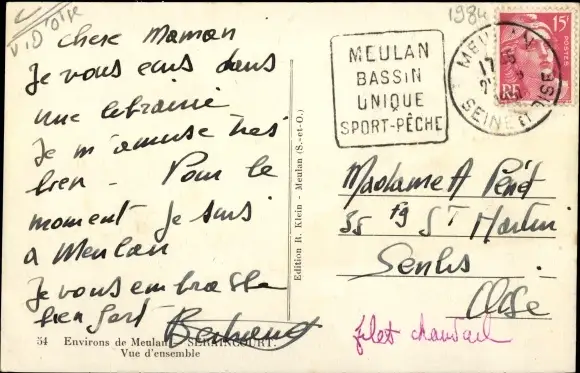 V.D'OISE
chere Maman
Je vous ecris dans
une librairie
Je m'amuse tres
bien - Pour le
moment Je suis
à Meulan
Je vous embrasse
bien fort Bertrand
54 Environs de Meulan - SERAINCOURT.
Vue d'ensemble
Edition R. Klein - Meulan (S.-et-O.)
MEULAN
BASSIN
UNIQUE
SPORT-PÊCHE
1984
MEULAN
SEINE ET OISE
15F
POSTES
RF
Madame A Péret
35 Fg St Martin
Senlis
Oise